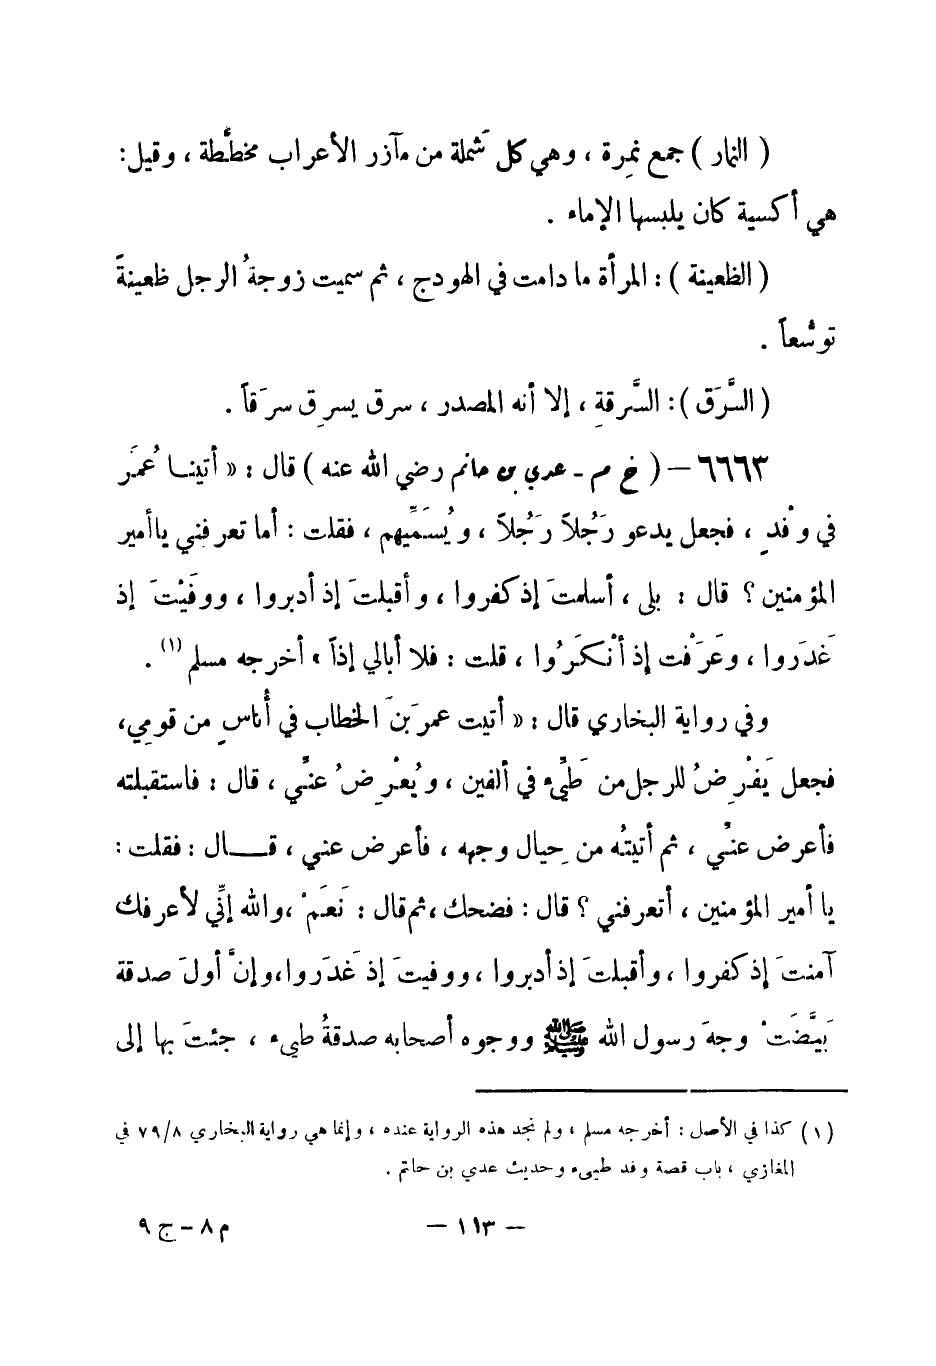 ( النمار ) جمع نمِرة ، وهي كل شَملة من مآزر الأعراب مخططَّة ، وقيل :
هي أكسية كان يلبسها الإماء .
( الظعينة ) : المرأة ما دامت في الهودج ، ثم سميت زوجةُ الرجل ظعينةً
توسُّعاً .
( السَّرَق ) : السَّرقةِ ، إلا أنه المصدر ، سرق يسرِق سرَقاً .
٦٦٦٣ – ( خ م - عدي بن حاتم رضي الله عنه ) قال : « أتينا عُمَر
في وفْدٍ ، فجعل يدعو رَجُلاً رَجُلاً ، ويُسَمِّيهم ، فقلت : أما تعرفني يا أمير
المؤمنين ؟ قال : بلى ، أسلمتَ إذ كفروا ، وأقبلتَ إذ أدبروا ، ووفَيْتَ إذ
غَدَروا ، وعَرَفْت إذ أنْكَرُوا ، قلت : فلا أبالي إذاً » أخرجه مسلم (١) .
وفي رواية البخاري قال : « أتيت عمرَ بنَ الخطاب في أُناسٍ من قومِي،
فجعل يَفْرِضُ للرجل من طَيِّىء في ألفين ، ويُعْرِضُ عنِّي ، قال : فاستقبلته
فأعرض عنِّي ، ثم أتيتُه من حِيال وجهه ، فأعرض عني ، قال : فقلت :
يا أمير المؤمنين ، أتعرفني ؟ قال : فضحك ، ثم قال : نَعَمْ ، والله إنِّي لأعرفك
آمنتَ إذ كفروا ، وأقبلتَ إذ أدبروا ، ووفيتَ إذ غَدَروا ، وإنَّ أولَ صدقة
بَيَّضَتْ وجهَ رسول الله ﷺ ووجوه أصحابه صدقةُ طيء ، جئتَ بها إلى
(١) كذا في الأصل : أخرجه مسلم ، ولم نجد هذه الرواية عنده ، وإنما هي رواية البخاري ٧٩/٨ في
المغازي ، باب قصة وفد طيىء وحديث عدي بن حاتم .
– ١١٣ –
م ٨ - ج ٩